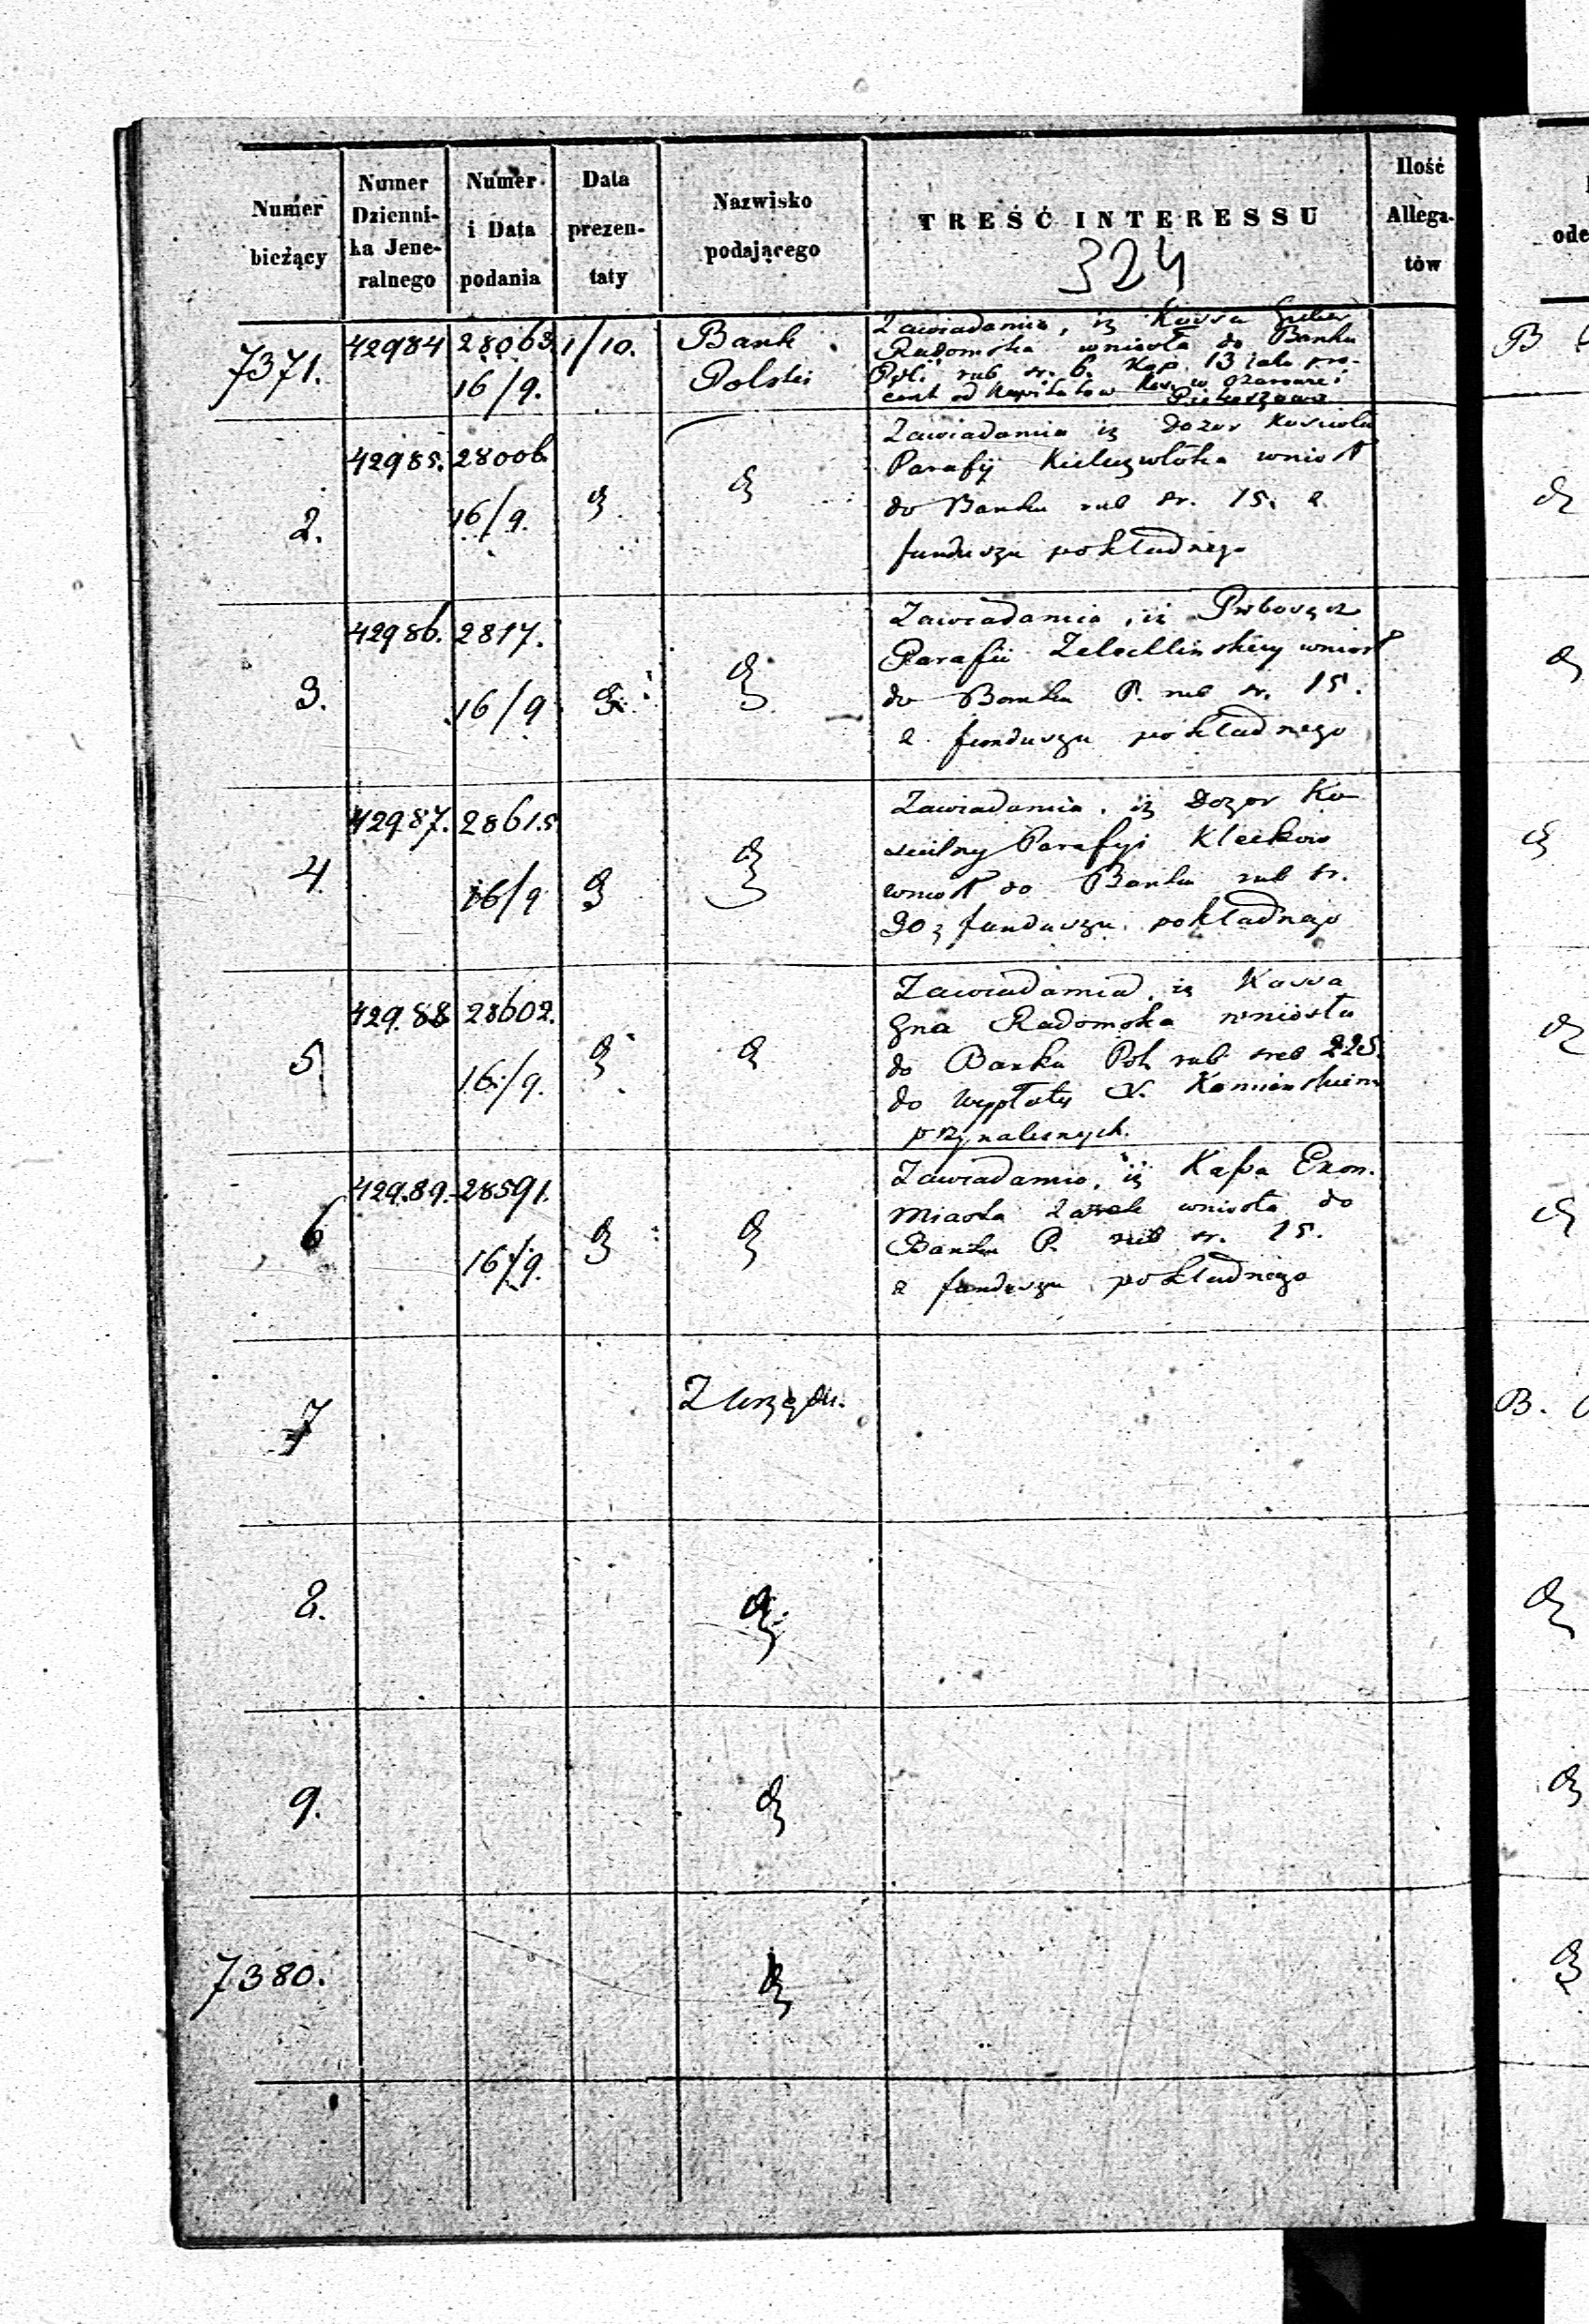 Numer bieżący
Numer Dzienni- ka Jene- ralnego
Numer i Data podania
Data prezen- taty
Nazwisko podającego
TREŚĆ INTERESSU
Ilość Allega- tów
324
7371. 42984 28063 16/9. 1/10. Bank Polski
Zawiadamia, iż Kassa Guber
Radomska wniosła do Banku
Pol. rub sr. 6. kop. 13 pro-
cent od Kapitałów
2. 42985. 28006. 16/9.
Zawiadamia iż Dozor Kościoła
Parafij wniosł
do Banku rub sr. 15. z
funduszu pokładnego
3. 42986. 2817. 16/9
Zawiadamia, iż Proboszcz
Parafii wniosł
do Banku P. rub sr. 15.
z funduszu pokładnego
4. 42987. 28615 16/9
Zawiadamia, iż Dozor Ko
scielny Parafyi
wniosł do Banku rub sr.
30 z funduszu pokładnego
5 42988 28602. 16/9.
Zawiadamia, iż Kassa
Gna Radomska wniosła
do Banku Pol. rub sreb 225.
do wypłaty
przynależnych.
6 42989. 28591. 16/9.
Zawiadamia, iż Kassa Ekon.
Miasta wniosła do
Banku P. rub sr. 15.
z funduszu pokładnego
7 Z Urzędu.
8.
9.
7380.
ode
B
B.